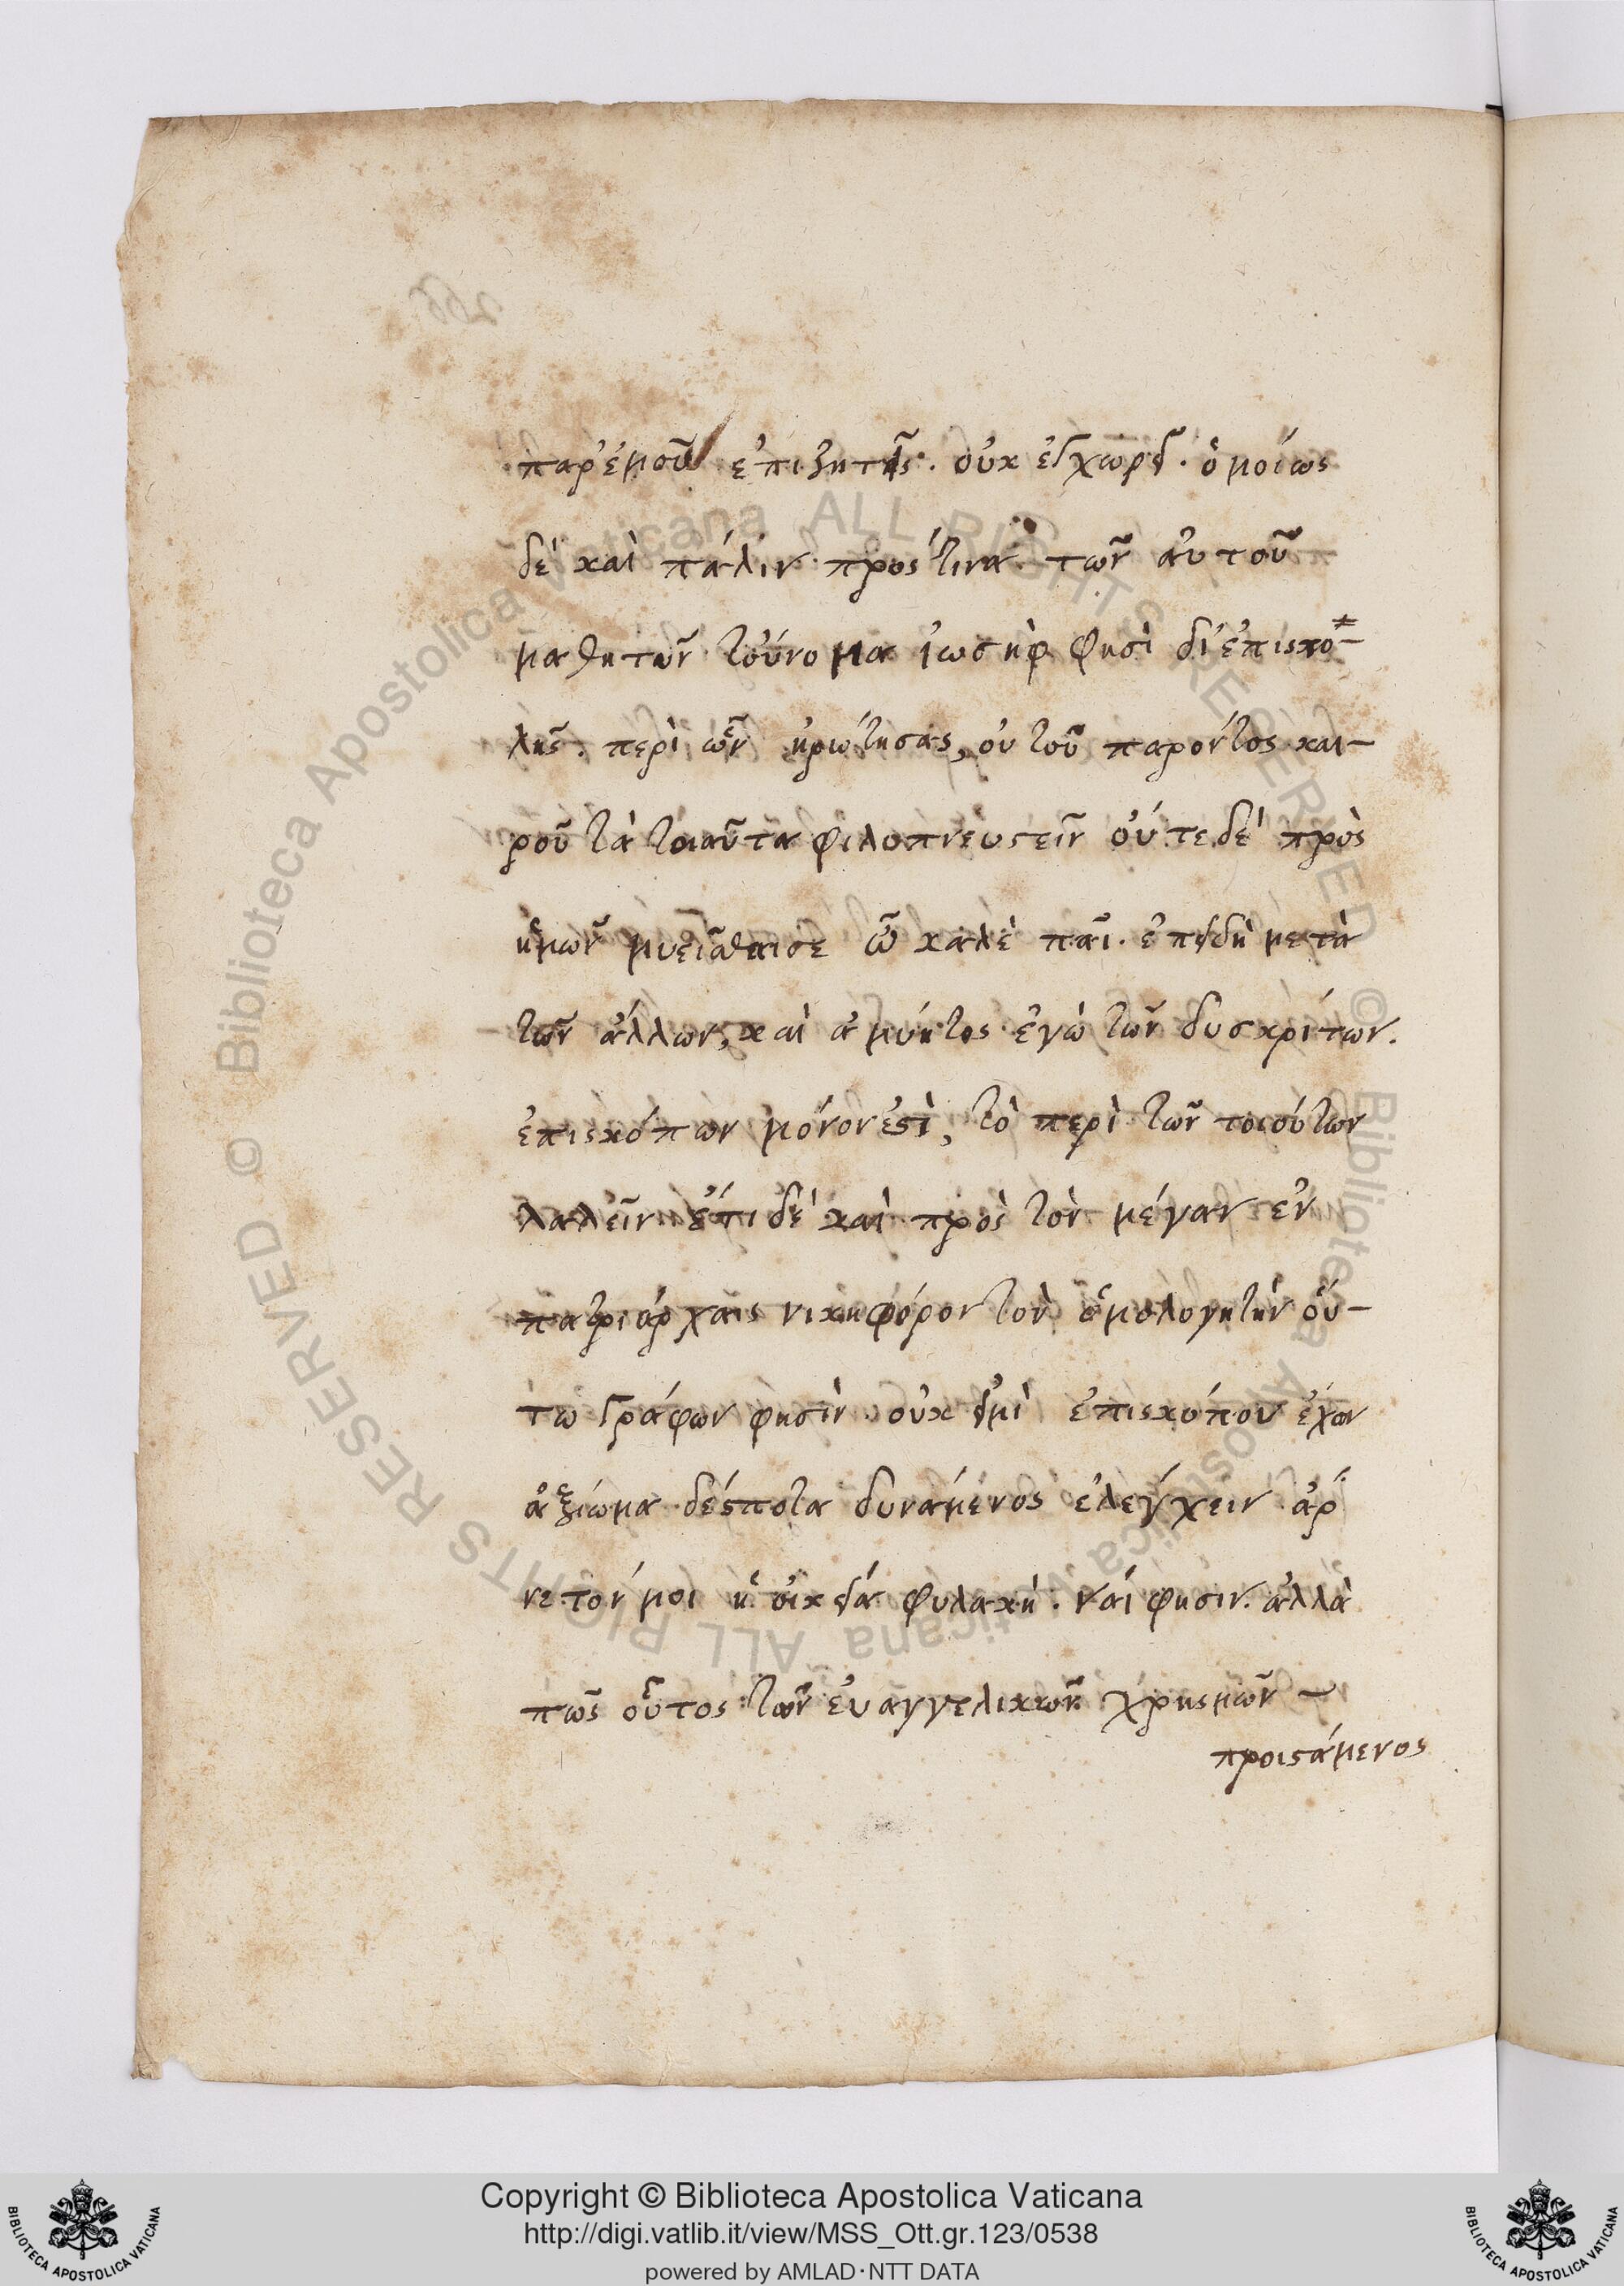 παρ' ἐμοῦ ἐπιζητεῖς. οὐκ ἐγχωρεῖ. ὁμοίως
δὲ καὶ πάλιν πρός τινα τῶν αὐτοῦ
μαθητῶν τοὔνομα ἰωσὴφ φησὶ δι' ἐπιστο-
λῆς. περὶ ὧν ἠρώτησας, οὐ τοῦ παρόντος και-
ροῦ τὰ τοιαῦτα φιλοπνευστεῖν οὔτε δὲ πρὸς
ἡμῶν μυεῖσθαι σε ὦ καλὲ παῖ. ἐπειδὴ μετὰ
τῶν ἄλλων, καὶ ἀμύητος ἐγὼ τῶν δυσκρίτων.
ἐπισκόπων μόνον ἐστὶ, τὸ περὶ τῶν τοιούτων
λαλεῖν ἔτι δὲ καὶ πρὸς τὸν μέγαν ἐν
πατριάρχαις νικηφόρον τὸν ὁμολογητὴν οὕ-
τω γράφων φησὶν. οὐκ εἰμὶ ἐπισκόπου ἔχων
ἀξίωμα δέσποτα δυνάμενος ἐλέγχειν. ἀρ
κετόν μοι ἡ οἰκεία φυλακή. ναί φησιν. ἀλλὰ
πῶς οὗτος τῶν εὐαγγελικῶν χρησμῶν
προιστάμενος
Copyright © Biblioteca Apostolica Vaticana
http://digi.vatlib.it/view/MSS_Ott.gr.123/0538
powered by AMLAD·NTT DATA